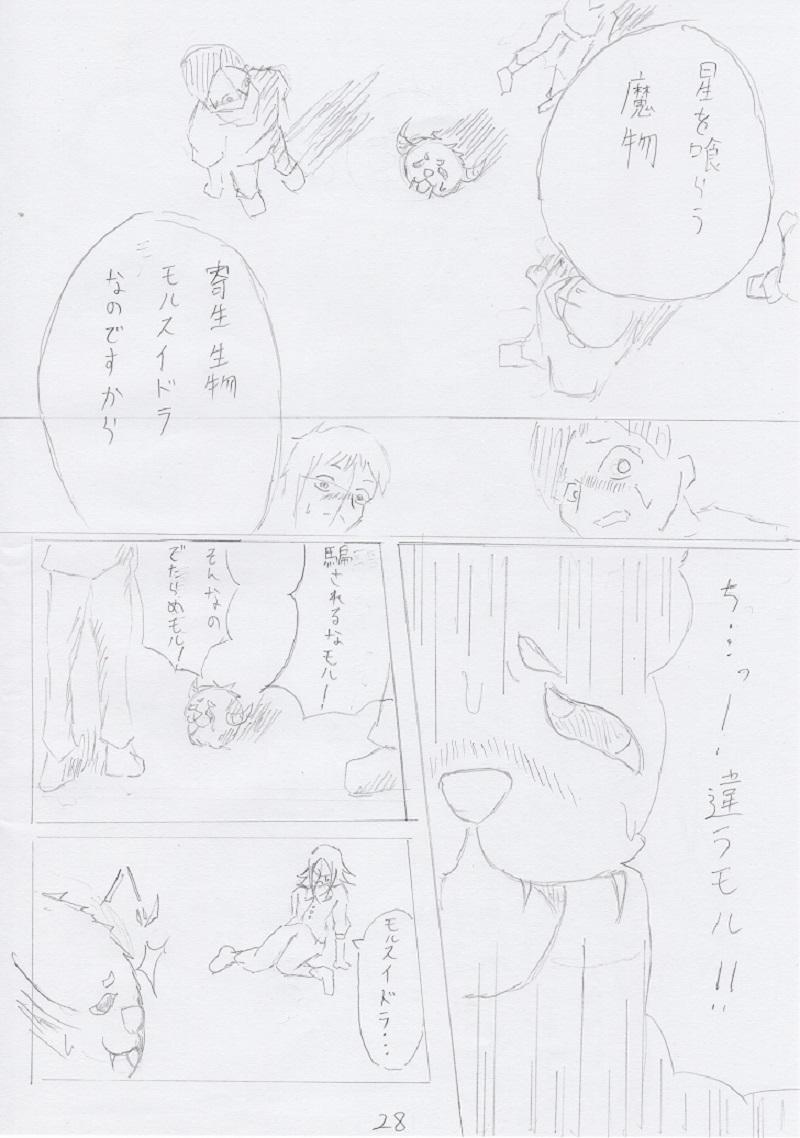 星を喰らう
魔物
寄生生物
モルスイドラ
なのですから
ち・・・っ！・違うモル！！
騙されるなモル！
そんなの
でたらめモル！
モルスイドラ・・・
28